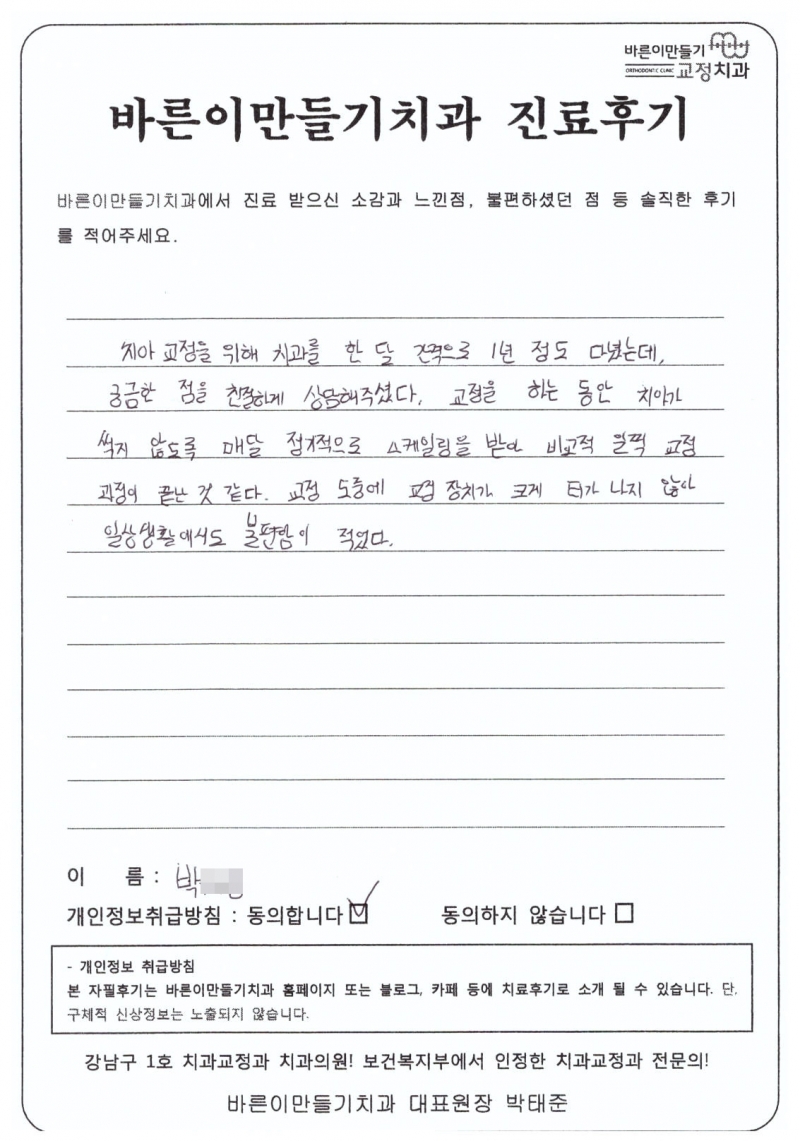 바른이만들기
ORTHODONTIC CLINIC 교정치과
바른이만들기치과 진료후기
바른이만들기치과에서 진료 받으신 소감과 느낀점, 불편하셨던 점 등 솔직한 후기
를 적어주세요.
치아 교정을 위해 치과를 한 달 간격으로 1년 정도 다녔는데,
궁금한 점을 친절하게 상담해주셨다. 교정을 하는 동안 치아가
썩지 않도록 매달 정기적으로 스케일링을 받아 비교적 일찍 교정
과정이 끝난 것 같다. 교정 도중에 교정 장치가 크게 티가 나지 않아
일상생활에서도 불편함이 적었다.
이 름 : 박
개인정보취급방침 : 동의합니다 동의하지 않습니다
- 개인정보 취급방침
본 자필후기는 바른이만들기치과 홈페이지 또는 블로그, 카페 등에 치료후기로 소개 될 수 있습니다. 단,
구체적 신상정보는 노출되지 않습니다.
강남구 1호 치과교정과 치과의원! 보건복지부에서 인정한 치과교정과 전문의!
바른이만들기치과 대표원장 박태준